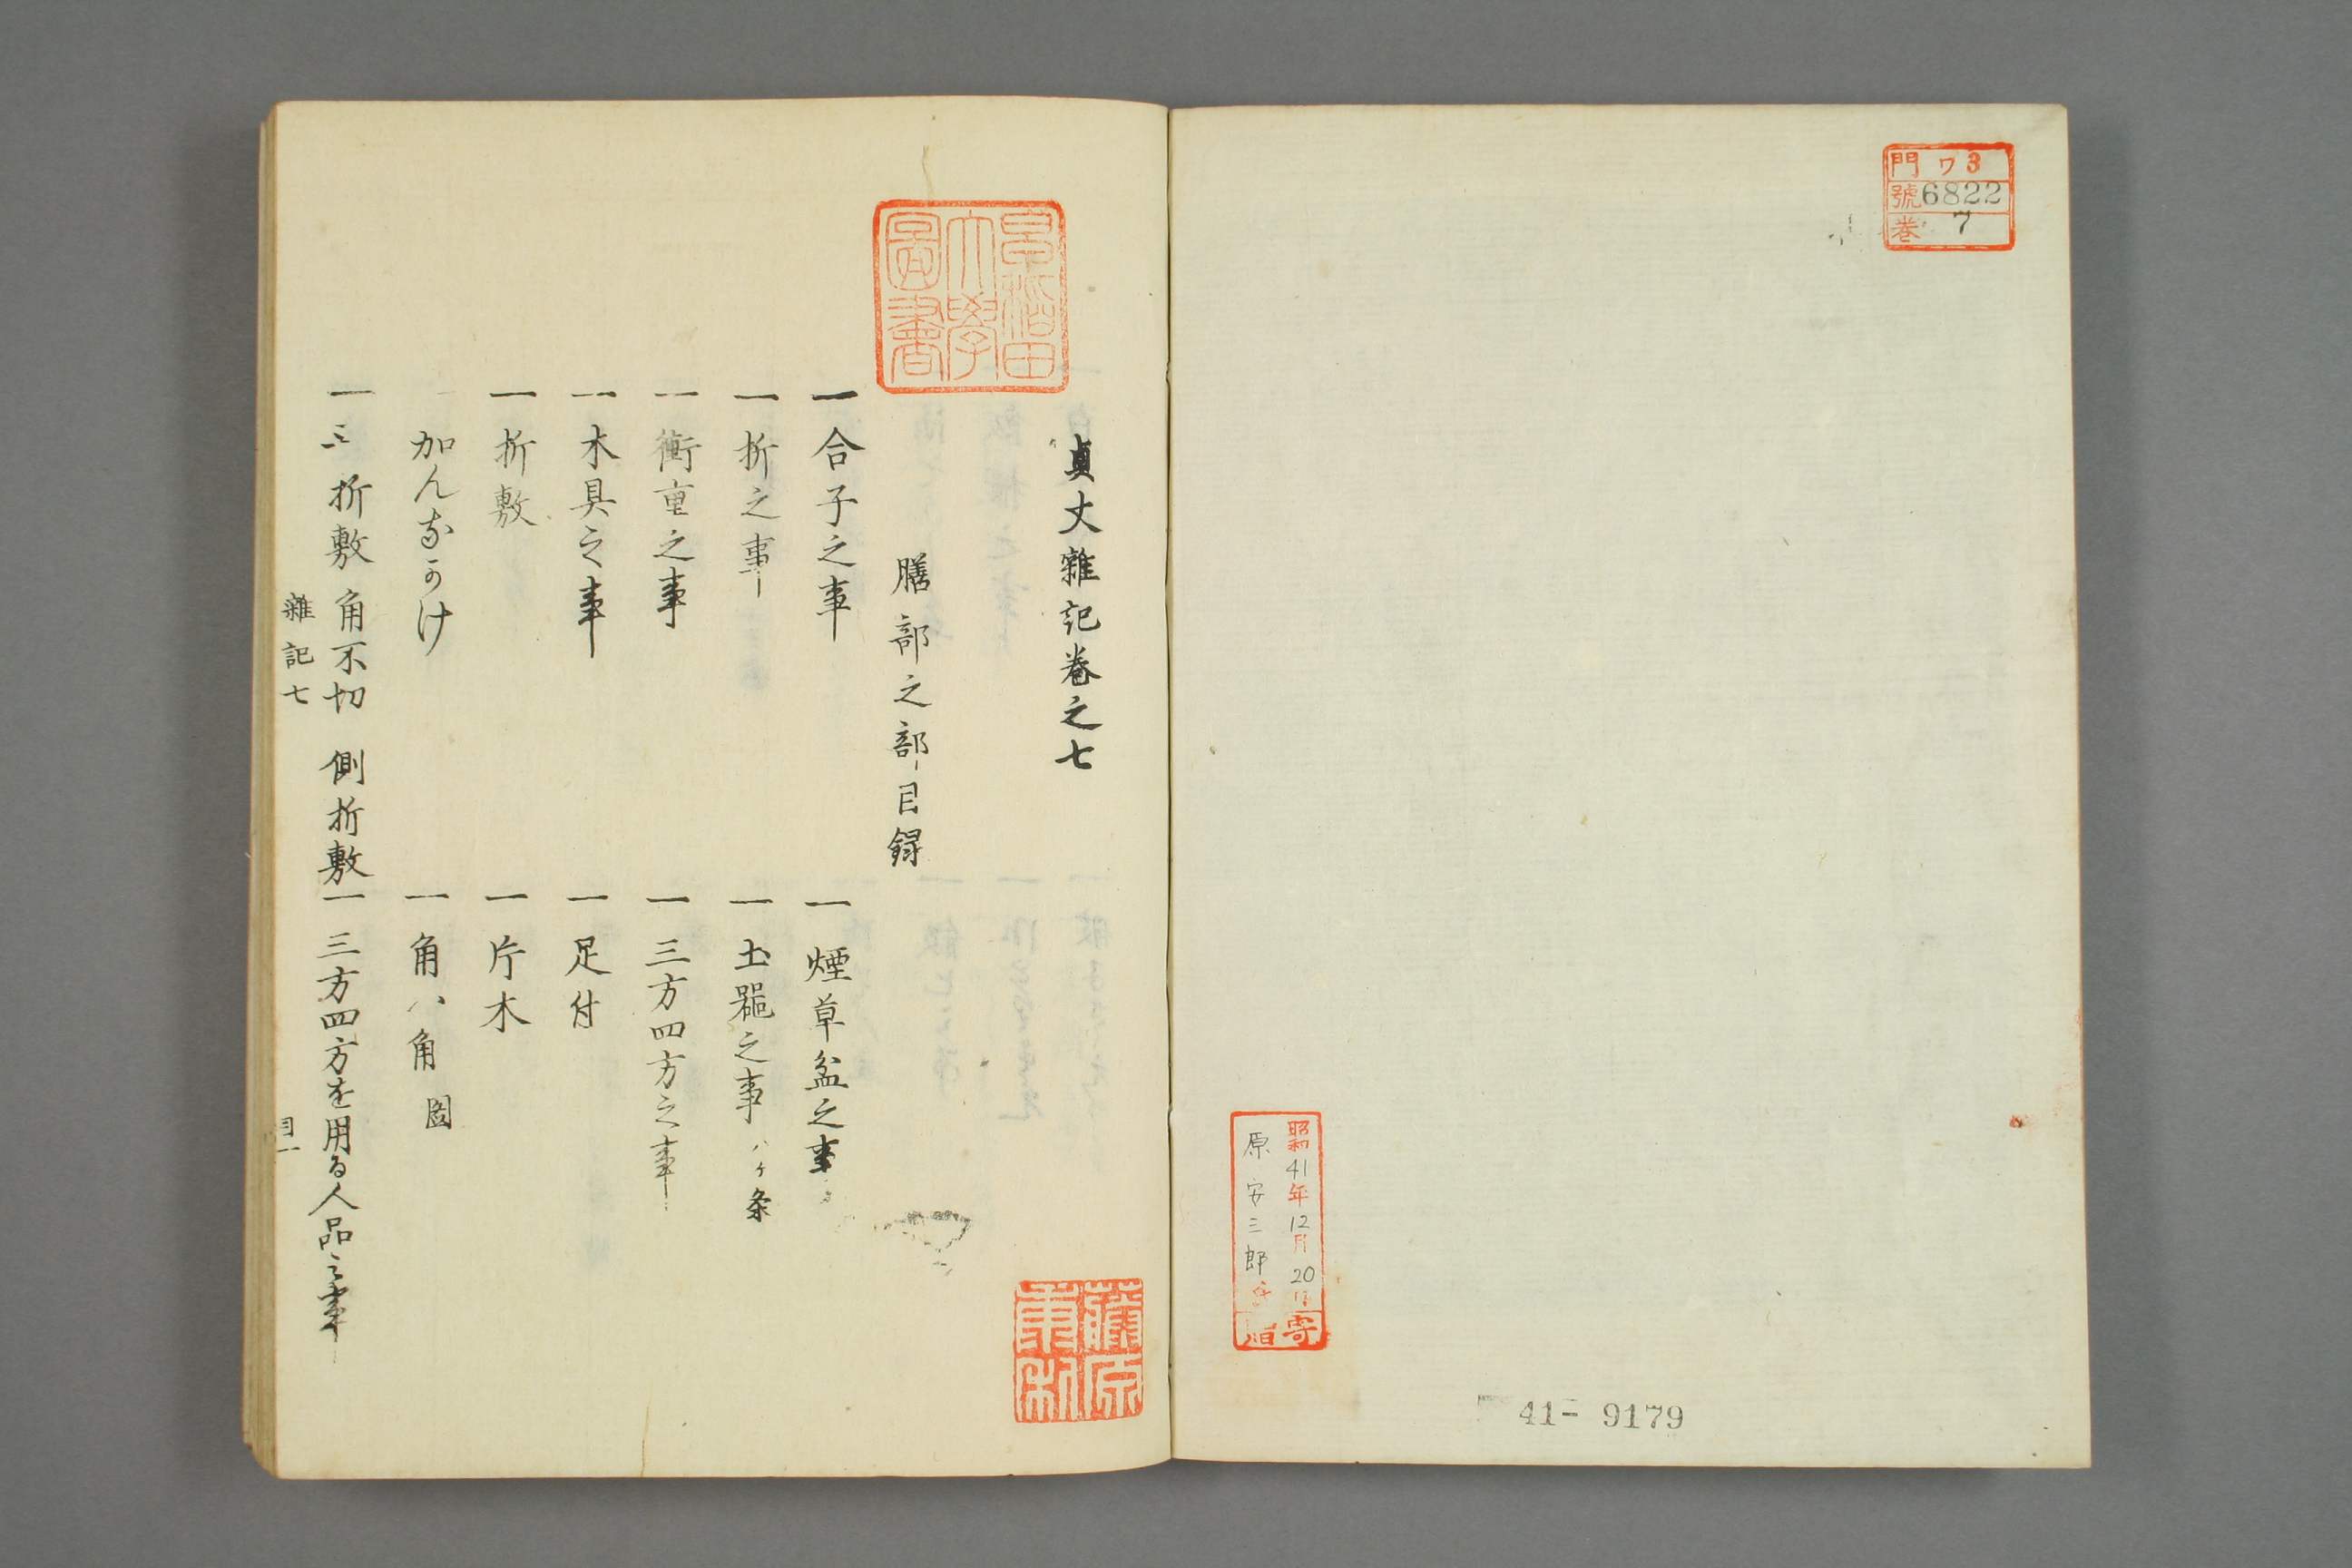 門 ワ3
號 6822
巻 7
昭和41年12月20日
原安三郎氏
寄贈
41- 9179
早稲田
大學
圖書
貞丈雜記巻之七
膳部之部目録
一 合子之事
一 煙草盆之事
一 折之事
一 土器之事 八ヶ条
一 衝重之事
一 三方四方之事
一 木具之事
一 足付
一 折敷
一 片木
一 加んなかけ
一 角八角 圖
一 三折敷 角不切 側折敷
一 三方四方を用る人品之事
雜記七
目一
藤原